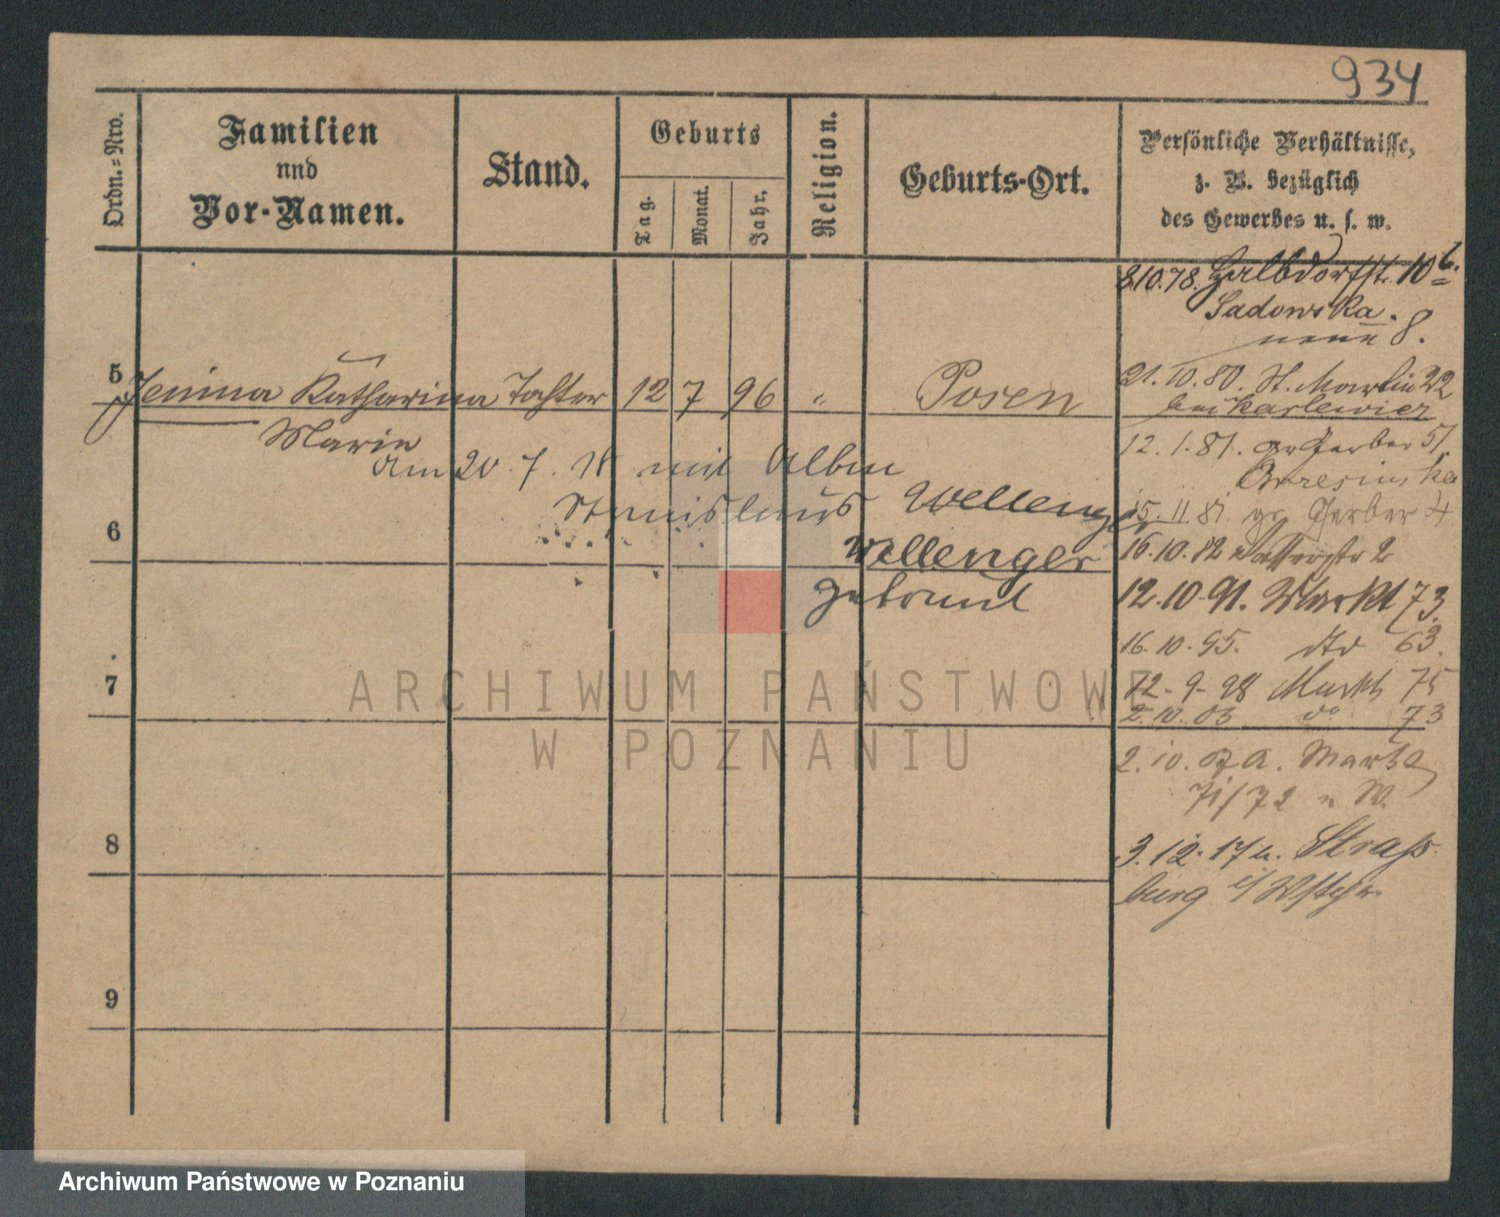 934
Ordn.=Nro.
Familien
und
Vor-Namen.
Stand.
Geburts
Tag.
Monat.
Jahr.
Religion.
Geburts-Ort.
Persönliche Verhältnisse,
z. B. bezüglich
des Gewerbes u. s. w.
8.10.78. Halbdorfstr. 10b.
Sadowska.
neue 8.
21.10.80. St. Martin 22
bei Karlewicz
5 Katharina Tochter 12 7 96 " Posen
Marie
12.1.81. gr Gerber 51
am 20.7.18 mit Albin
Stanislaus Wellenger
15.11.81. gr. Gerber 4
6
Wellenger
16.10.82
getraut
12.10.91. Markt 73.
16.10.95. dto 63.
7
12.9.98 Markt 75
2.10.03 do 73
2.10. a. Markt
71/72 n W.
8
3.12.17 n. Strass-
burg i/Wstpr.
9
ARCHIWUM PAŃSTWOWE
W POZNANIU
Archiwum Państwowe w Poznaniu